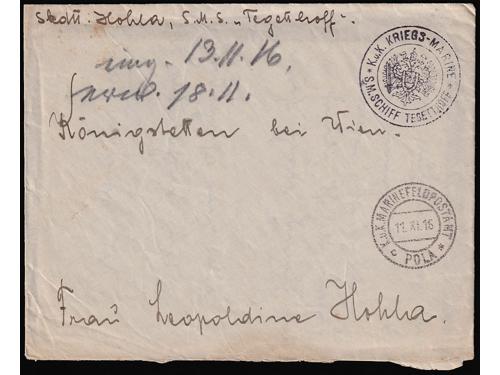 Skdtt: Hohla, S.M.S. „Tegetthoff".
K.u.K. KRIEGS-MARINE
* S.M.SCHIFF TEGETTHOFF *
13.11.16.
18.11.
Königstetten bei Wien.
K.u.K. MARINEFELDPOSTAMT
11.XI.16
* POLA *
Frau Leopoldine Hohla.